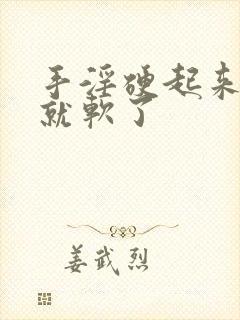 手淫硬起来
就軟了
姜武烈